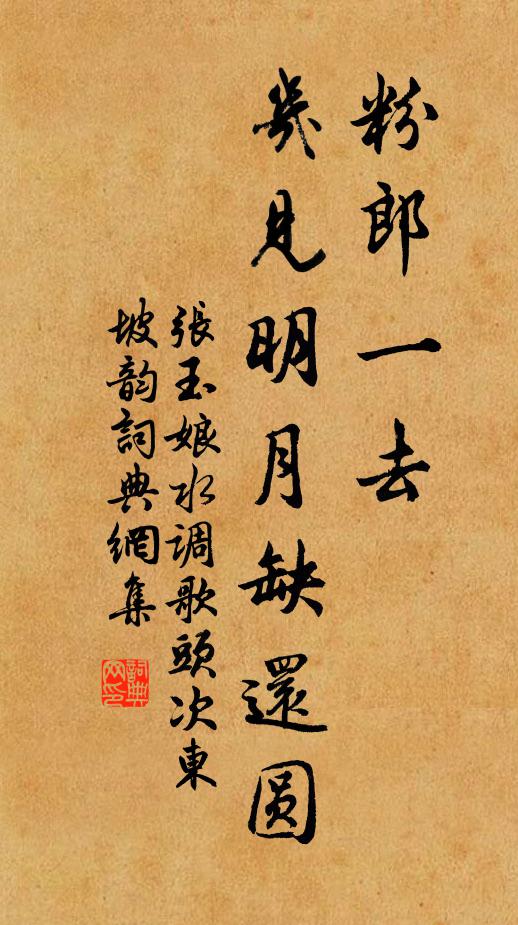 粉郎一去
幾見明月缺還圆
張玉娘水调歌頭次東
坡韵詞典網集
詞典网印